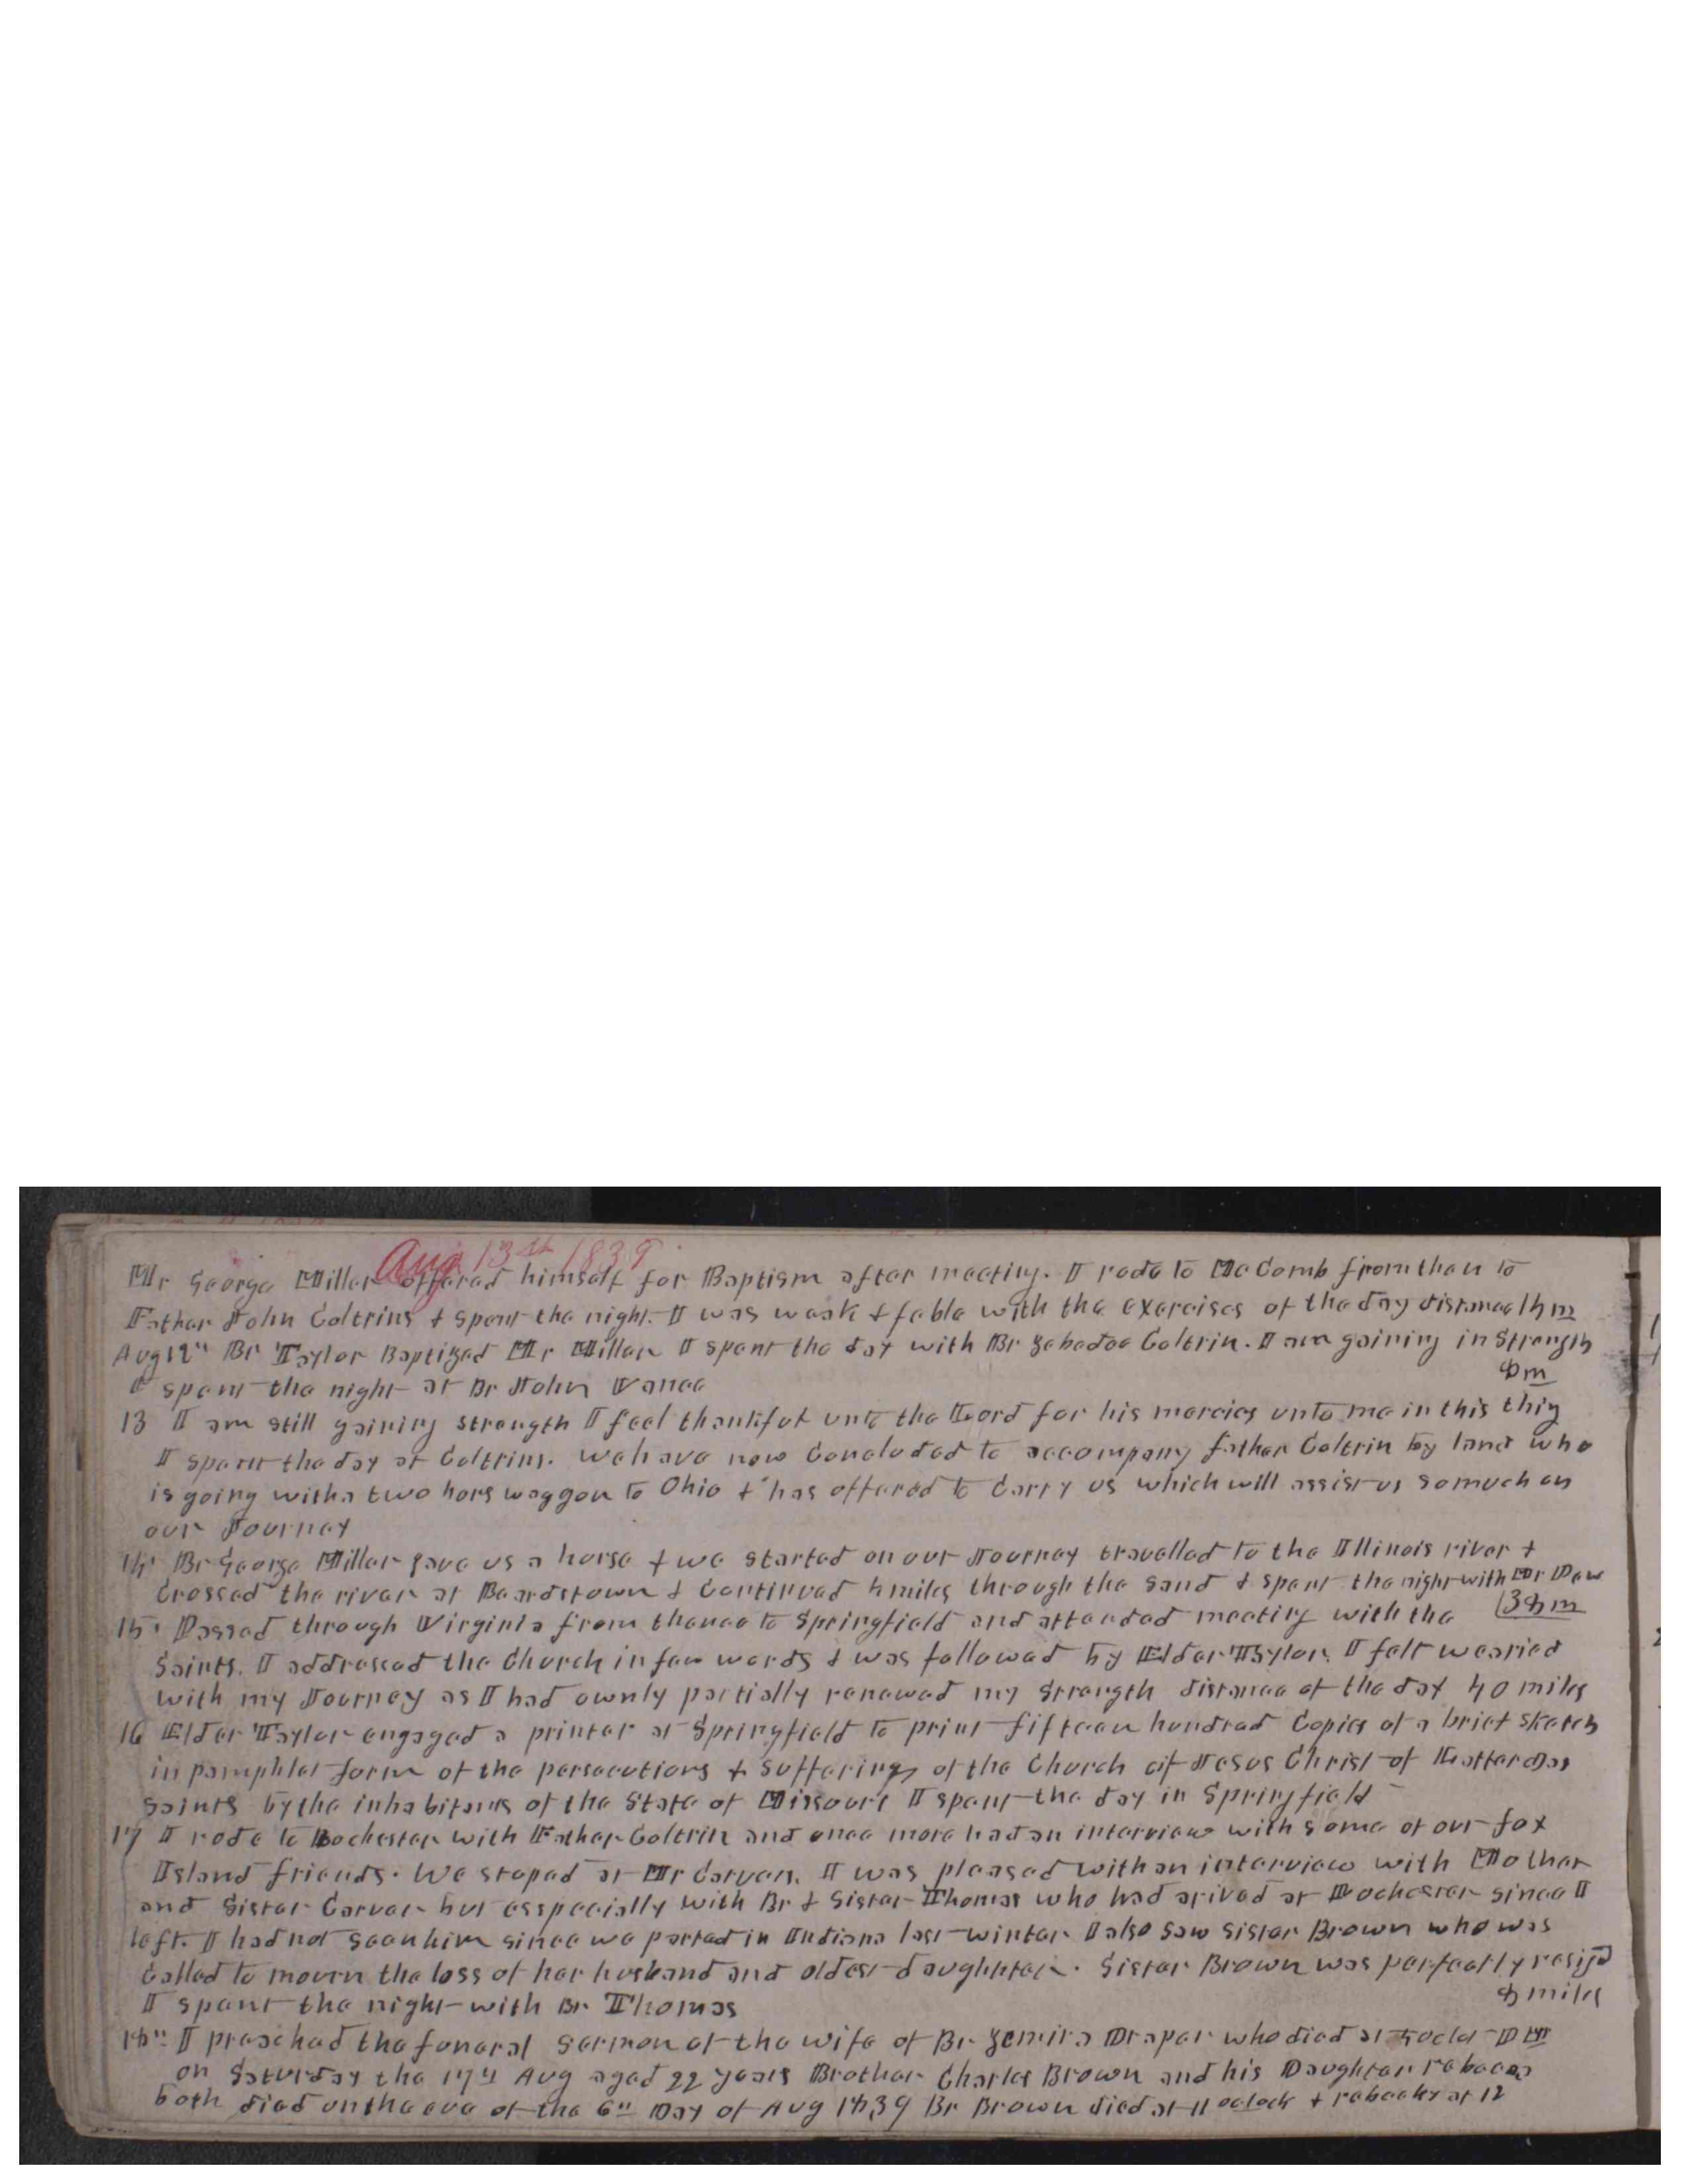 Aug 13th 1839
Mr George Miller offered himself for Baptism after meeting. I rode to McComb from then to
Father John Coltrins & spent the night. I was weak & feble with the exercises of the day distance 14 m
Aug 12" Br Taylor Baptized Mr Miller I spent the day with Br Zebedee Coltrin. I am gaining in Strength
I spent the night at Br John Vance 8 m
13 I am still gaining strength I feel thankful unto the Lord for his mercies unto me in this thing
I spent the day at Coltrins. We have now Concluded to accompany father Coltrin by land who
is going with a two hors waggon to Ohio & has offered to Carry us which will assist us so much on
our Journey
14" Br George Miller gave us a horse & we started on our Journey travelled to the Illinois river &
Crossed the river at Beardstown & Continued 4 miles through the Sand & spent the night with Mr Dew
38 m
15" Passed through Virginia from thence to Springfield and attended meeting with the
Saints. I addressed the Church in few words & was followed by Elder Taylor. I felt wearied
with my Journey as I had ownly partially renewed my Strength distance of the day 40 miles
16 Elder Taylor engaged a printer at Springfield to print fifteen hundred Copies of a brief Sketch
in pamphlet form of the persecutions & Sufferings of the Church of Jesus Christ of Latter Day
Saints by the inhabitants of the State of Missouri I spent the day in Springfield
17 I rode to Rochester with Father Coltrin and once more had an interview with some of our fox
Island friends. We stoped at Mr Carvers. I was pleased with an interview with Mother
and Sister Carver but esspecially with Br & Sister Thomas who had arived at Rochester since I
left. I had not seen him since we parted in Indiana last winter I also saw Sister Brown who was
Called to mourn the loss of her husband and oldest daughter. Sister Brown was perfectly resign
I spent the night with Br Thomas 8 miles
18" I preached the funeral Sermon of the wife of Br Zemira Draper who died at oclok PM
on Saturday the 17" Aug aged 22 years Brother Charles Brown and his Daughter rebecca
both died on the eve of the 6" Day of Aug 1839 Br Brown died at 11 oclock & rebecky at 12